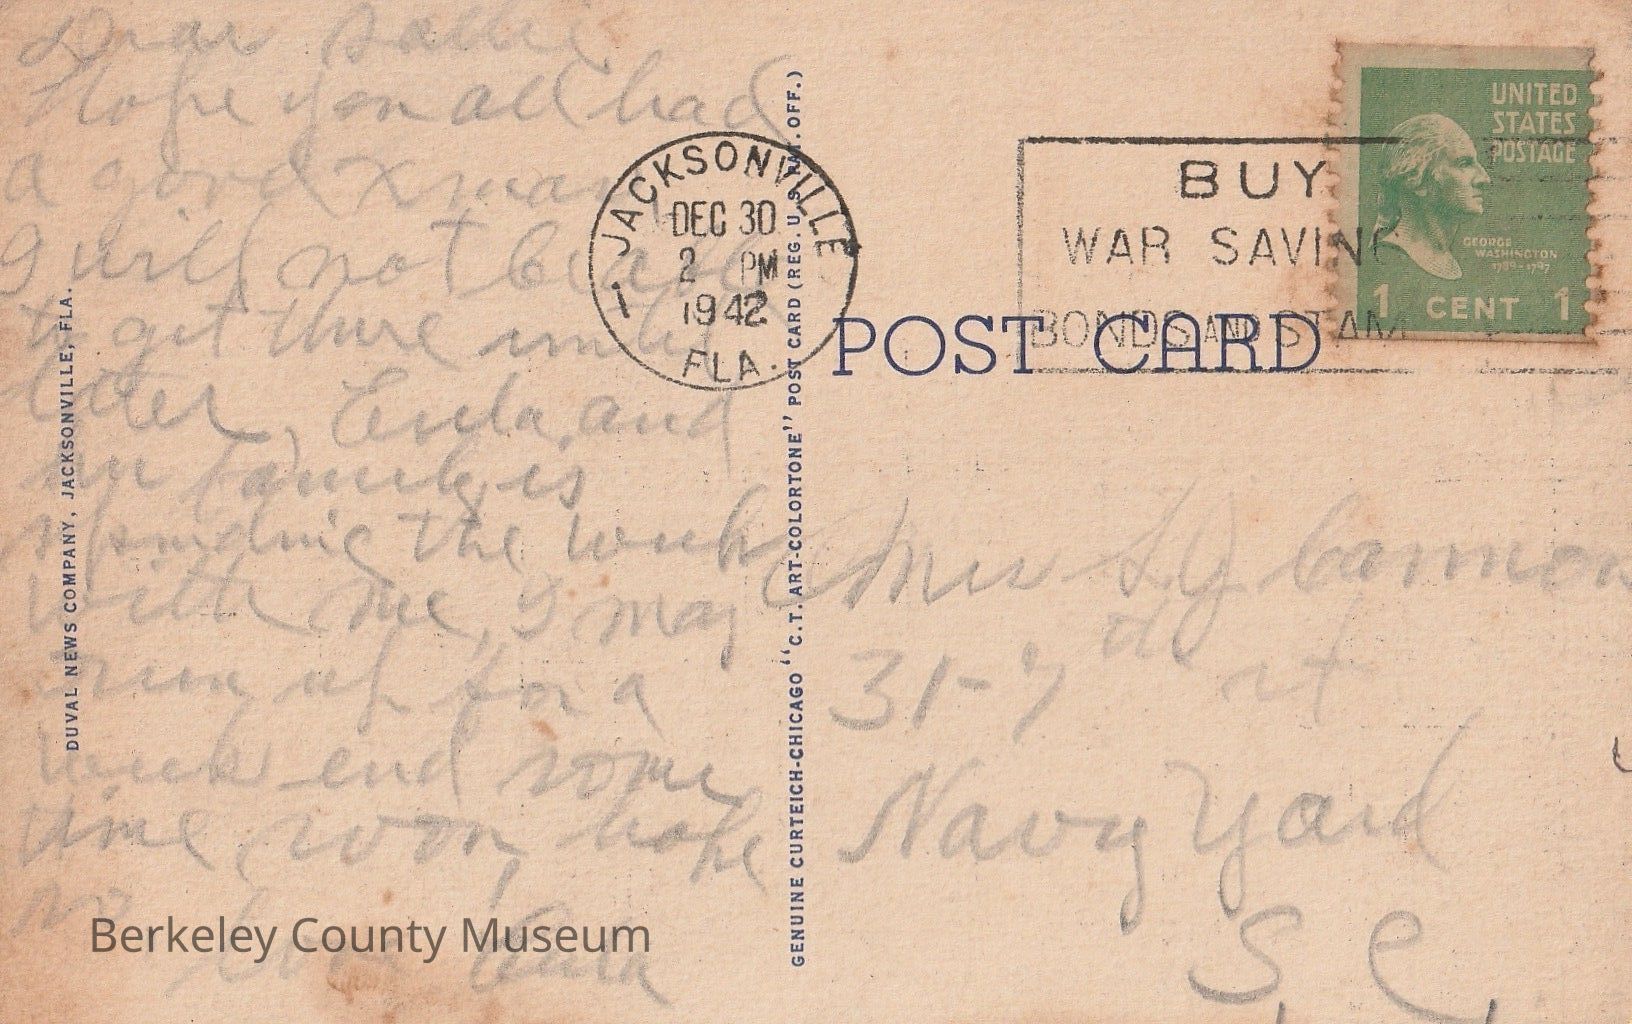 Dear Sallie
Hope you all had
a good Xmas,
I will not be able
to get there until
later, Eula and
family is
spending the week
with me, I may
run up for a
week end some
time soon, hope
so
Love
DUVAL NEWS COMPANY, JACKSONVILLE, FLA.
GENUINE CURTEICH-CHICAGO "C.T. ART-COLORTONE" POST CARD (REG. U.S. PAT. OFF.)
JACKSONVILLE
DEC 30
2 PM
1942
1
FLA.
BUY
WAR SAVING
BONDS AND STAM
UNITED
STATES
POSTAGE
GEORGE
WASHINGTON
1789-1797
1 CENT 1
POST CARD
Mrs L. J. Cannon
31-7th st
Navy Yard
S. C.
Berkeley County Museum